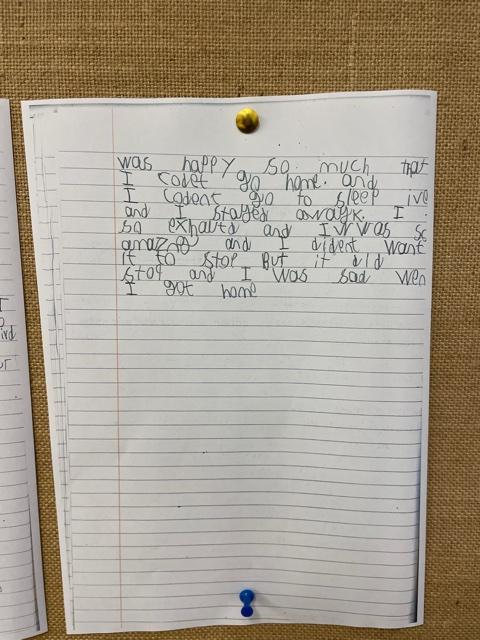 was happy so much that
I codet go home. and
I codent go to sleep ive
and I stayed awayk. I
so exhautd and I was so
amazed and I dident want
it to stop But it did
stop and I was sad wen
I got home
ird